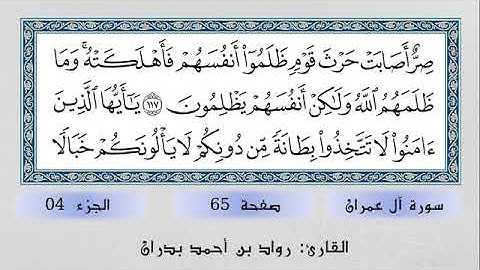 صِرٌّ أَصَابَتْ حَرْثَ قَوْمٍ ظَلَمُوٓا۟ أَنفُسَهُمْ فَأَهْلَكَتْهُ ۚ وَمَا
ظَلَمَهُمُ ٱللَّهُ وَلَـٰكِنْ أَنفُسَهُمْ يَظْلِمُونَ ١١٧ يَـٰٓأَيُّهَا ٱلَّذِينَ
ءَامَنُوا۟ لَا تَتَّخِذُوا۟ بِطَانَةً مِّن دُونِكُمْ لَا يَأْلُونَكُمْ خَبَالًا
سورة آل عمران صفحة 65 الجزء 04
القارئ: رواد بن أحمد بدران